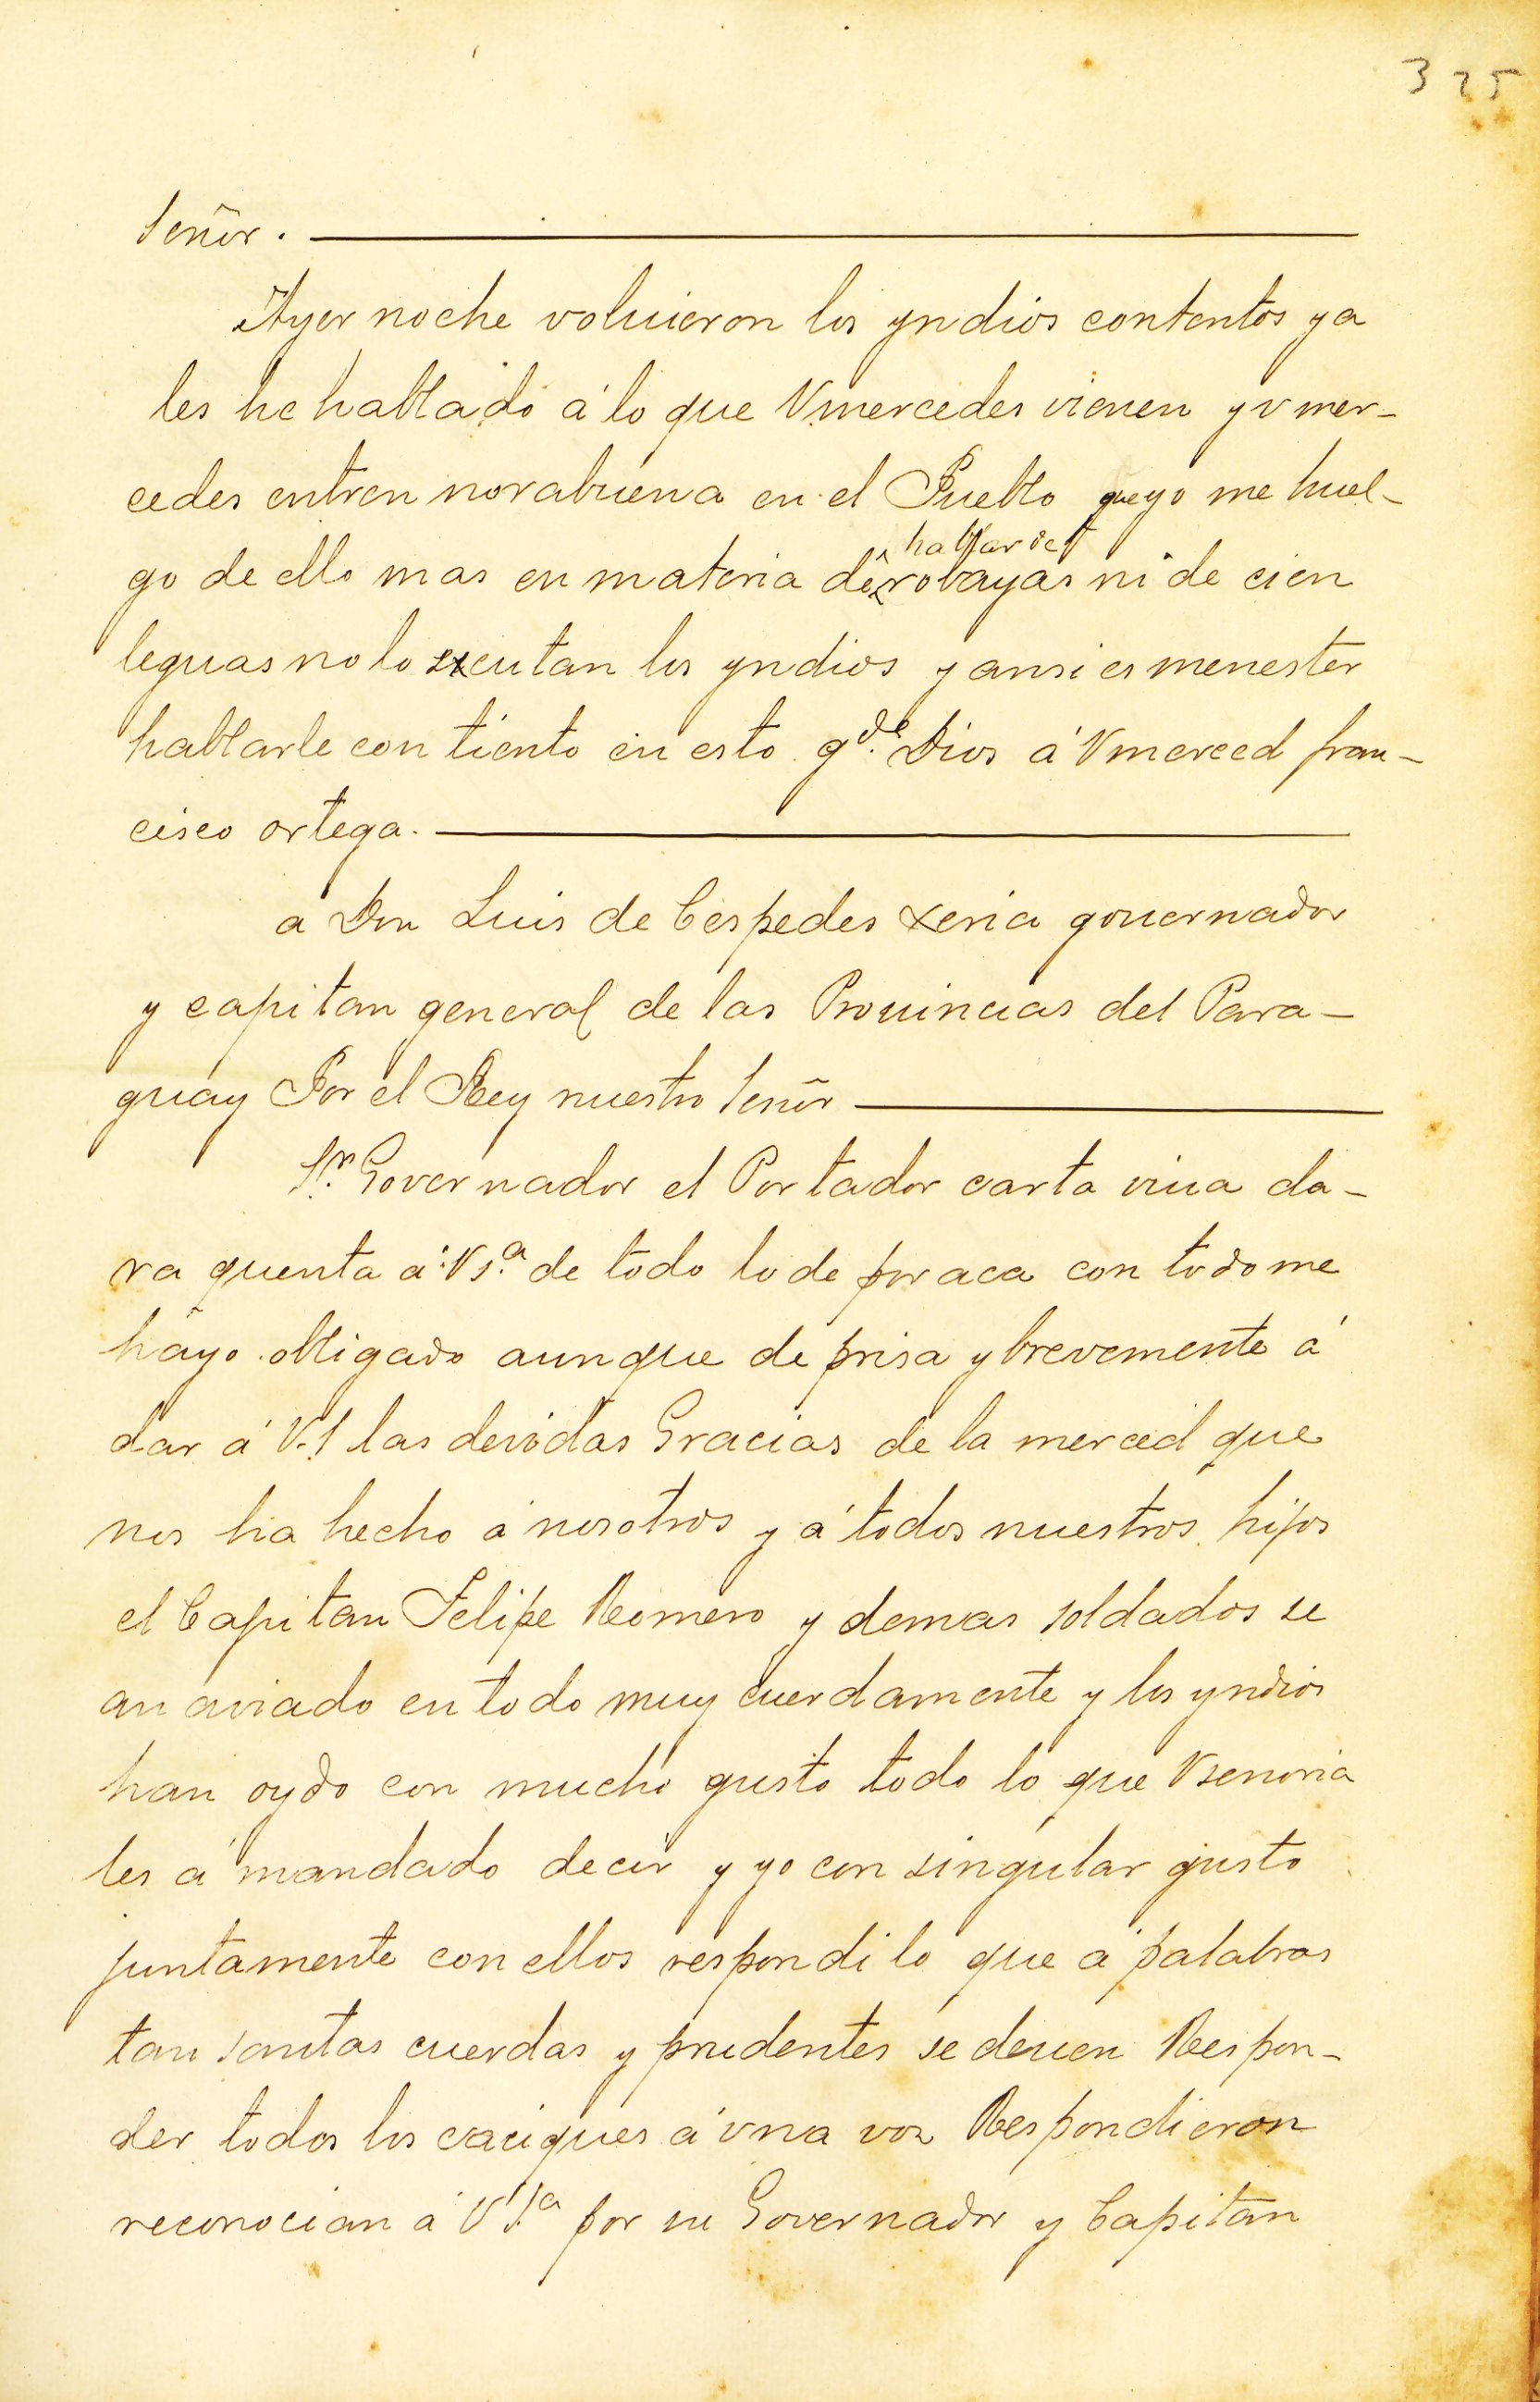 325
Señor.
Ayer noche voluieron los yndios contentos ya
les he hablado á lo que Vmercedes vienen y vmer-
cedes entren norabuena en el Pueblo que yo me huel-
go de ello mas en materia de hablar de robayas ni de cien
leguas no lo escutan los yndios y ansi es menester
hablarle con tiento en esto gde. Dios á Vmerced fran-
cisco ortega.
a Don Luis de Cespedes xeria gouernador
y capitan general de las Prouincias del Para-
guay Por el Rey nuestro Señor
Sr. Governador el Portador carta viua da-
ra quenta á Vsa. de todo lo de por aca con todo me
hayo obligado aunque de prisa y brevemente á
dar á V.S las devidas Gracias de la merced que
nos ha hecho á nosotros y á todos nuestros hijos
el Capitan Felipe Romero y demas soldados se
an aviado en todo muy cuerdamente y los yndios
han oydo con mucho gusto todo lo que Vsenoria
les á mandado decir y yo con singular gusto
juntamente con ellos respondi lo que á palabras
tan santas cuerdas y prudentes se deuen Respon-
der todos los caciques á vna voz Respondieron
reconocian á V Sa. por su Governador y Capitan